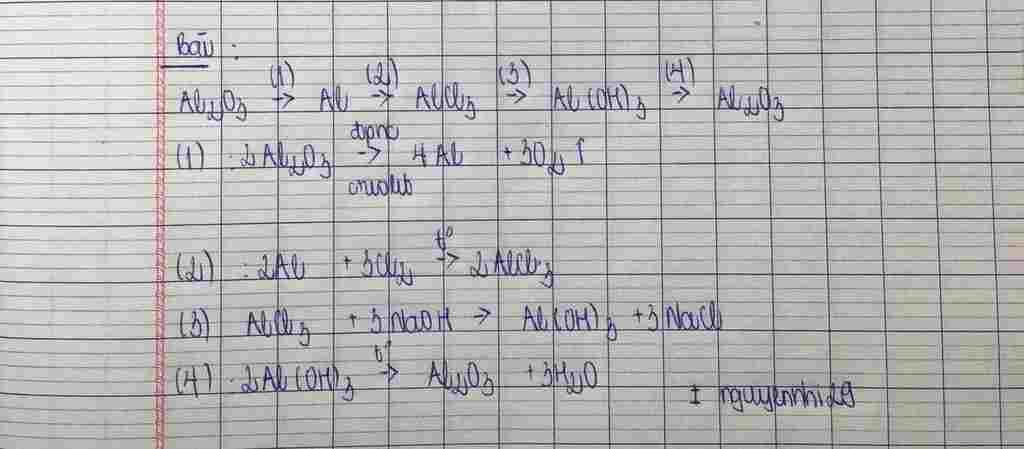 Bài :
Al₂O₃ (1)→ Al (2)→ AlCl₃ (3)→ Al(OH)₃ (4)→ Al₂O₃
(1) : 2Al₂O₃ đpnc→ criolit 4Al + 3O₂↑
(2) : 2Al + 3Cl₂ t°→ 2AlCl₃
(3) AlCl₃ + 3NaOH → Al(OH)₃ + 3NaCl
(4) : 2Al(OH)₃ t°→ Al₂O₃ + 3H₂O
I nguyennhi29